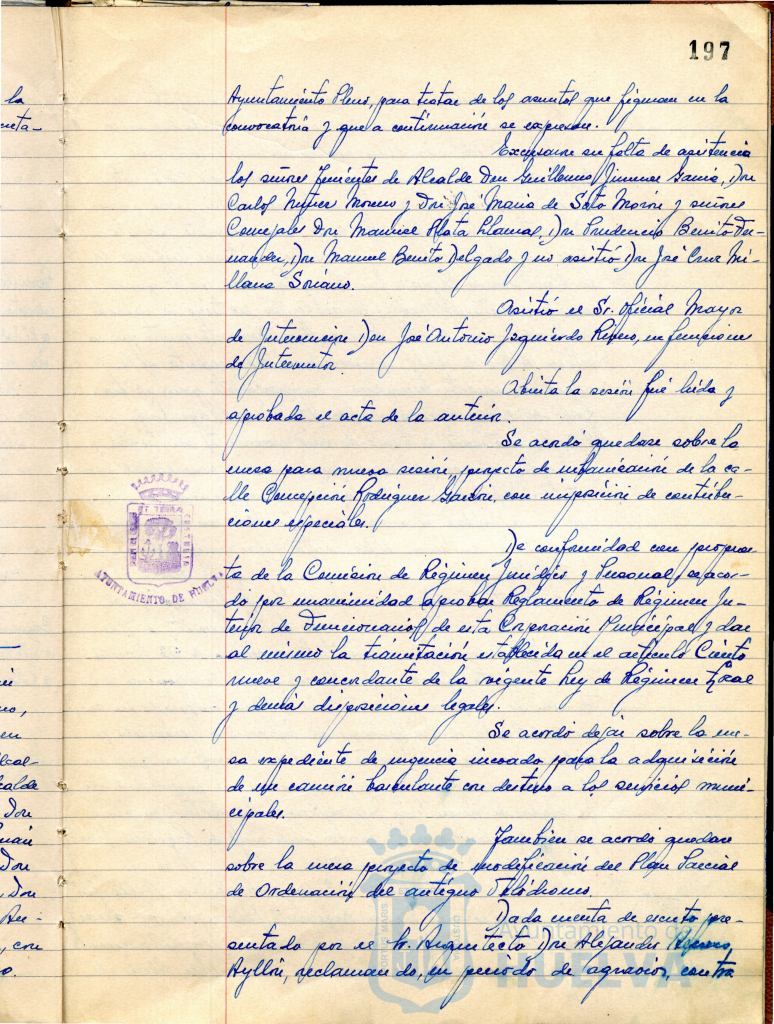 197
la
Ayuntamiento Pleno, para tratar de los asuntos que figuran en la
convocatoria y que a continuación se expresan.
Excusaron su falta de asistencia
los señores Tenientes de Alcalde Don Guillermo Jimenez Garcia, Don
Carlos Nuñez Moreno y Don José Maria de Soto Morón y señores
Concejales Don Manuel Plata Llamas, Don Prudencio Benito Fer-
nandez, Don Manuel Benito Delgado y no asistió Don José Cruz Mi-
llans Soriano.
Asistió el Sr. Oficial Mayor
de Intervención Don José Antonio Izquierdo Rivero, en funciones
de Interventor.
Abierta la sesión fué leida y
aprobada el acta de la anterior.
Se acordó quedase sobre la
mesa para nueva sesión, proyecto de urbanización de la ca-
lle Concepción Rodriguez Garzón, con imposición de contribu-
ciones especiales.
De conformidad con propues-
ta de la Comisión de Régimen Jurídico y Personal, se acor-
dó por unanimidad aprobar Reglamento de Régimen In-
terior de Funcionarios de esta Corporación Municipal y dar
al mismo la tramitación establecida en el artículo Ciento
nueve y concordante de la vigente Ley de Régimen Local
y demás disposiciones legales.
Se acordó dejar sobre la me-
sa expediente de urgencia incoado para la adquisición
de un camión basculante con destino a los servicios muni-
cipales.
Tambien se acordó quedase
sobre la mesa proyecto de modificación del Plan Parcial
de Ordenación del antiguo Velódromo.
Dada cuenta de escrito pre-
sentado por el Sr. Arquitecto Don Alejandro Herrero
Ayllón, reclamando, en periodo de agravios, contra
AYUNTAMIENTO DE HUELVA
Ayuntamiento de
HUELVA